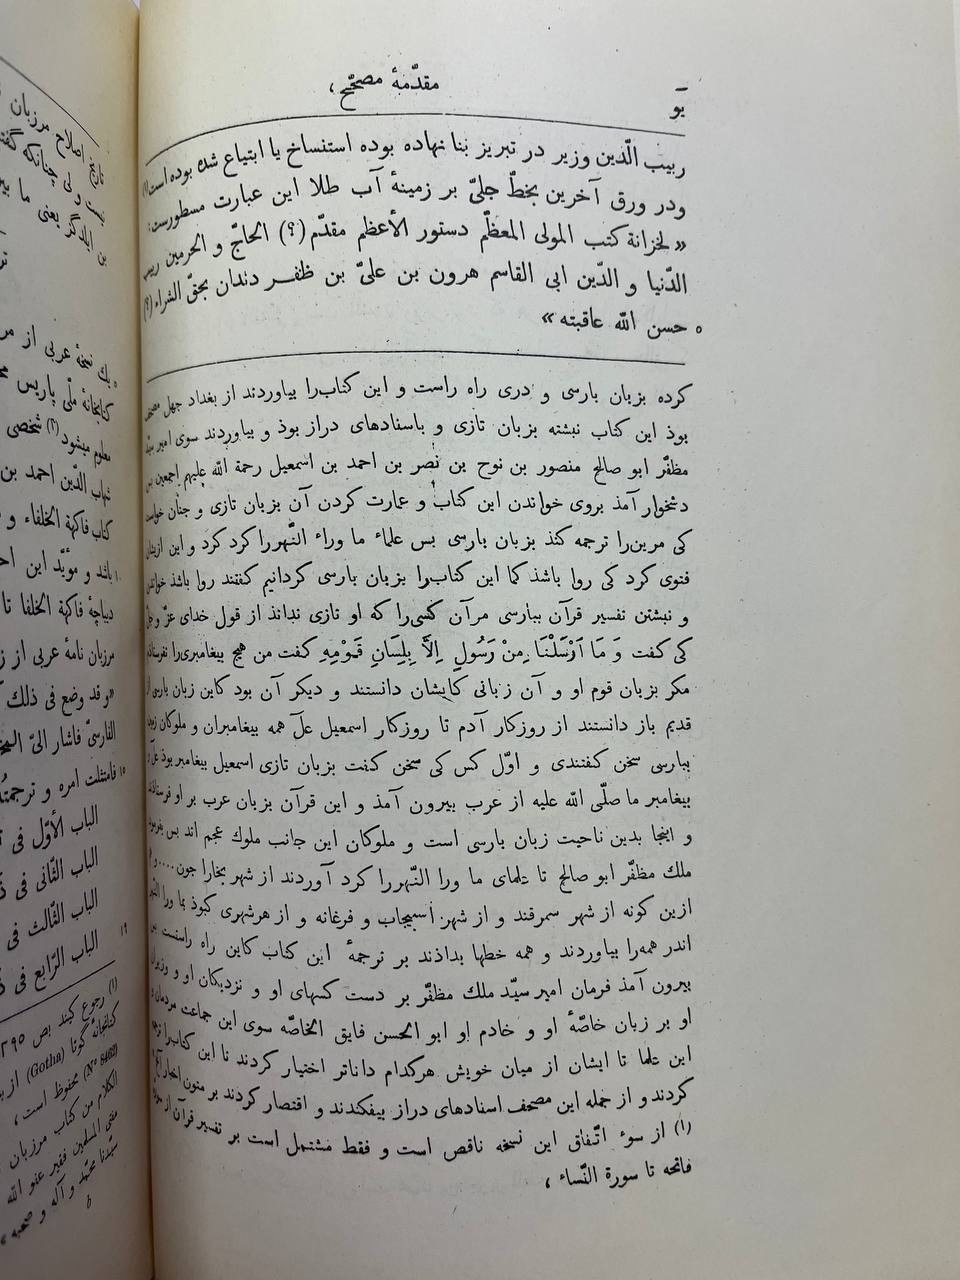 مقدّمهٔ مصحّح ،
یو
ربیب الّدین وزیر در تبریز بنا نهاده بوده استنساخ یا ابتیاع شده بوده است (۱)
ودر ورق آخرین بخطّ جلیّ بر زمینهٔ آب طلا این عبارت مسطورست:
« لخزانة کتب المولی المعظّم دستور الأعظم مقدّم (؟) الحاجّ و الحرمین ربیب
الدّنیا و الدّین ابی القاسم هرون بن علیّ بن ظفر دندان بحقّ الشراء (؟)
۵ حسن اللّه عاقبته »
کرده بزبان بارسی و دری راه راست و این کتاب‌را بیاوردند از بغداد جهل مصحف
بوذ این کتاب نبشته بزبان تازی و باسنادهای دراز بوذ و بیاوردند سوی امیر سیّد
مظفّر ابو صالح منصور بن نوح بن نصر بن احمد بن اسمعیل رحمة اللّه علیهم اجمعین بس
دشخوار آمذ بروی خواندن این کتاب و عبارت کردن آن بزبان تازی و جنان خواست
کی مرین‌را ترجمه کند بزبان بارسی بس علماء ما وراء النّهررا کرد کرد و این ازیشان
فتوی کرد کی روا باشذ کما این کتاب‌را بزبان بارسی کردانیم کفتند روا باشذ خواندن
و نبشتن تفسیر قرآن ببارسی مرآن کسی‌را که او تازی نداند از قول خدای عزّ و جلّ
کی کفت وَ مَا اَرْسَلْنَا مِنْ رَسُولٍ اِلاَّ بِلِسَانِ قَوْمِهِ کفت من هیج بیغامبری‌را نفرستاذم
مکر بزبان قوم او و آن زبانی کایشان دانستند و دیکر آن بود کاین زبان بارسی از
قدیم باز دانستند از روزکار آدم تا روزکار اسمعیل عَلَ همه بیغامبران و ملوکان زمین
ببارسی سخن کفتندی و اوّل کس کی سخن کفت بزبان تازی اسمعیل بیغامبر بوذ عَلَ و
بیغامبر ما صلّی اللّه علیه از عرب بیرون آمذ و این قرآن بزبان عرب بر او فرستاذند
و اینجا بدین ناحیت زبان بارسی است و ملوکان این جانب ملوک عجم اند بس بفرموذ
ملک مظفّر ابو صالح تا علمای ما ورا النّهررا کرد آوردند از شهر بخارا جون .... و م
ازین کونه از شهر سمرقند و از شهر اسبیجاب و فرغانه و از هرشهری کبوذ بما ورا النّهر
اندر همه‌را بیاوردند و همه خطها بداذند بر ترجمهٔ این کتاب کاین راه راستست بس
بیرون آمذ فرمان امیر سیّد ملک مظفّر بر دست کسهای او و نزدیکان او و وزیران
او بر زبان خاصّهٔ او و خادم او ابو الحسن فایق الخاصّه سوی این جماعت مردمان و
این علما تا ایشان از میان خویش هرکدام داناتر اختیار کردند تا این کتاب‌را ترجمه
کردند و از جمله این مصحف اسنادهای دراز بیفکندند و اقتصار کردند بر متون اخبار الخ،
(۱) از سوء اتّفاق این نسخه ناقص است و فقط مشتمل است بر تفسیر قرآن از سورة
فاتحه تا سورة النّساء ،
تاریخ اصلاح مرزبان
نیست ولی چنانکه
بن ایلدگز یعنی ما
۵ یک نسخهٔ عربی از
کتابخانهٔ ملّی پاریس
معلوم میشود (۲) شخصی
شهاب الدّین احمد بن
کتاب فاکهة الخلفاء و
۱۰ باشد و مؤیّد این
دیباچهٔ فاکهة الخلفا تا
مرزبان نامهٔ عربی از
«و قد وضع فی ذلک
الفارسیّ فاشار الیّ
۱۵ فامتثلت امره و
الباب الأوّل فی
الباب الثّانی فی
الباب الثّالث فی
۱۹ الباب الرّابع فی
(۱) رجوع کنید بص ۲۹۵
کتابخانهٔ گوتا (Gotha)
محفوظ است ،
الکلام من کتاب مرزبان
مفتی المسلمین فقیر عفو اللّه
سیّدنا محمّد و آله و صحبه »
b